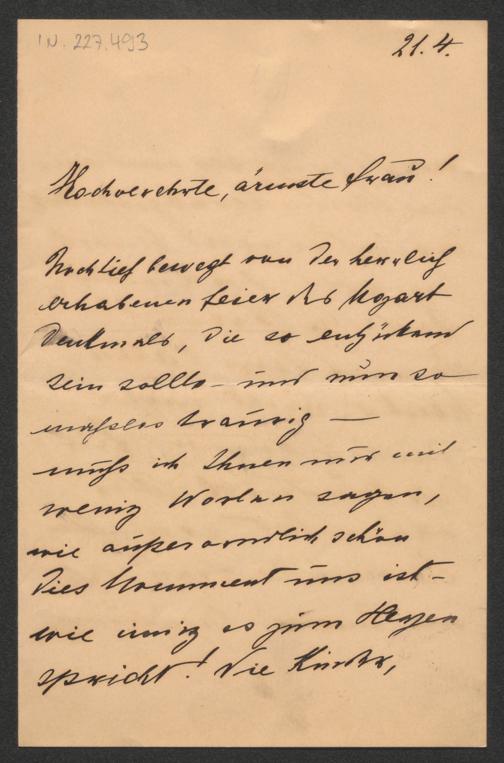 IN. 227.493
21.4.
Hochverehrte, ärmste Frau!
Noch tief bewegt von der herrlich
erhabenen Feier des Mozart
Denkmals, die so entzückend
sein sollte – und nun so
maßlos traurig —
muß ich Ihnen nur mit
wenig Worten sagen,
wie außerordentlich schön
dies Monument uns ist –
wie innig es zum Herzen
spricht! Die Kinder,